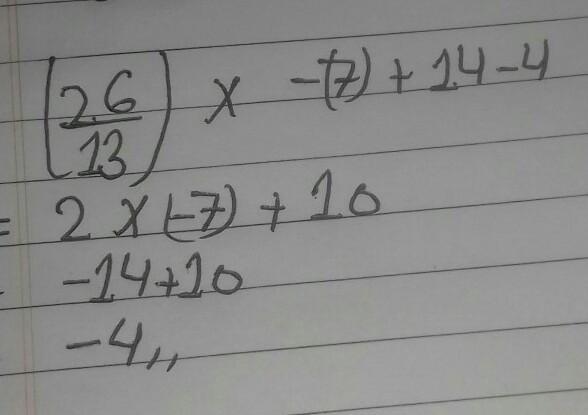 (26/13) × -(7) + 14 - 4
= 2 × (-7) + 10
-14+10
-4,,